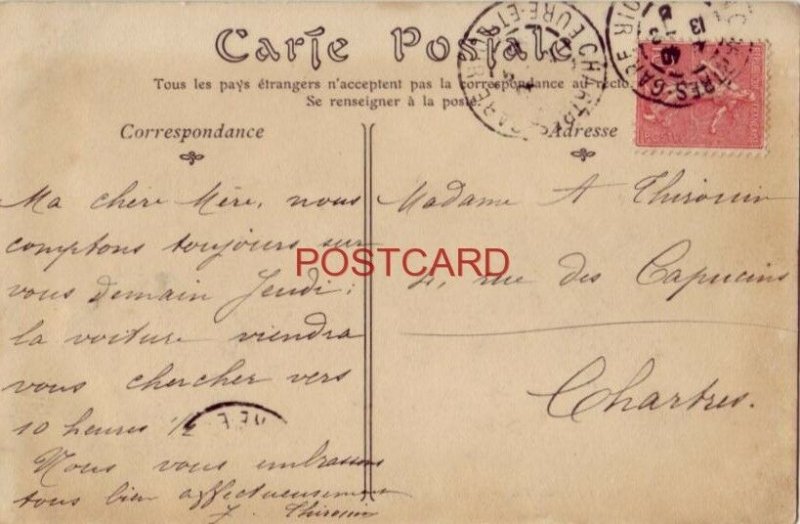 Carte Postale
Tous les pays étrangers n'acceptent pas la correspondance au recto.
Se renseigner à la poste.
Correspondance
Adresse
Ma chère Mère, nous
comptons toujours sur
vous demain Jeudi;
la voiture viendra
vous chercher vers
10 heures 1/2
Nous vous embrassons
tous bien affectueusement
J. Thirouin
Madame A Thirouin
4, rue des Capucins
Chartres.
POSTCARD
CHARTRES-GARE